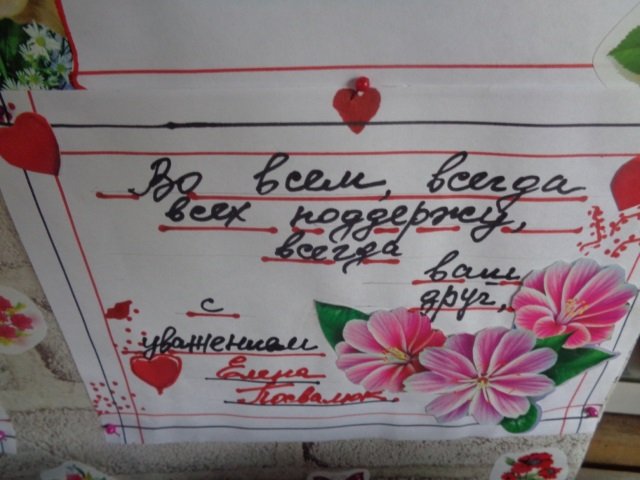 Во всем, всегда
всех поддержу,
всегда
ваш
друг,
с
уважением
Елена
Похвалюк.